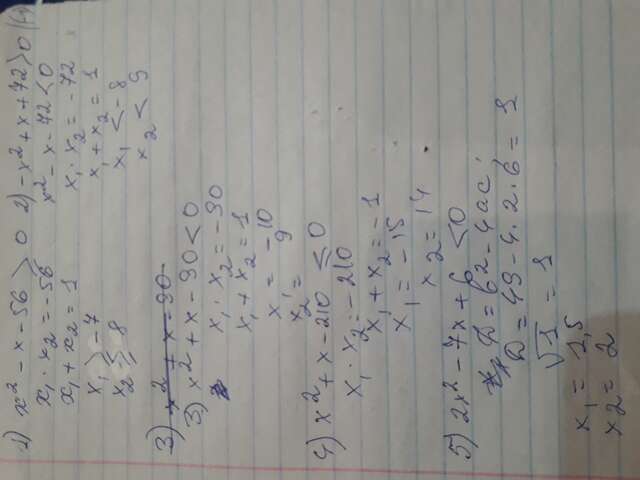 1) x² - x - 56 > 0
x₁ · x₂ = -56
x₁ + x₂ = 1
x₁ > -7
x₂ ≥ 8
2) -x² + x + 72 > 0 | (-)
x² - x - 72 < 0
x₁ · x₂ = -72
x₁ + x₂ = 1
x₁ < -8
x₂ < 9
3) x² + x - 90
3) x² + x - 90 < 0
x₁ · x₂ = -90
x₁ + x₂ = 1
x₁ = -10
x₂ = 9
4) x² + x - 210 ≤ 0
x₁ · x₂ = -210
x₁ + x₂ = -1
x₁ = -15
x₂ = 14
5) 2x² - 7x + 6 < 0
D = b² - 4ac
D = 49 - 4 · 2 · 6 = 1
√1 = 1
x₁ = 1,5
x₂ = 2